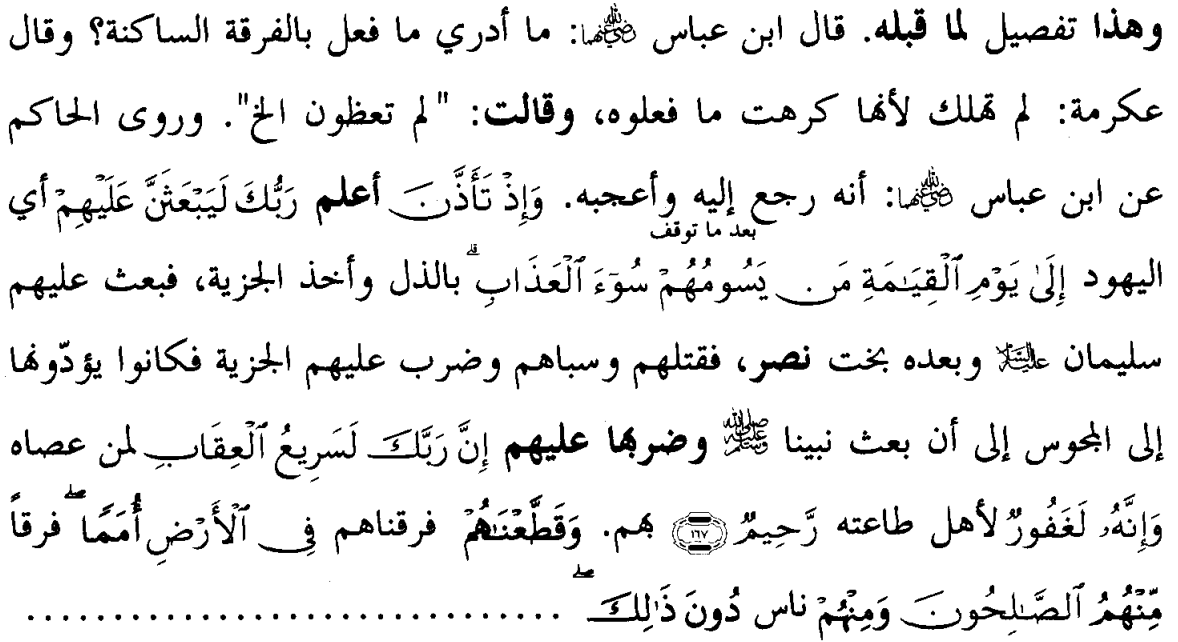 وهذا تفصيل لما قبله. قال ابن عباس رضي الله عنهما: ما أدري ما فعل بالفرقة الساكنة؟ وقال
عكرمة: لم تهلك لأنها كرهت ما فعلوه، وقالت: "لم تعظون الخ". وروى الحاكم
عن ابن عباس رضي الله عنهما: أنه رجع إليه وأعجبه. وَإِذْ تَأَذَّنَ أعلم رَبُّكَ لَيَبْعَثَنَّ عَلَيْهِمْ أي
بعد ما توقف
اليهود إِلَىٰ يَوْمِ ٱلْقِيَـٰمَةِ مَن يَسُومُهُمْ سُوٓءَ ٱلْعَذَابِ ۗ بالذل وأخذ الجزية، فبعث عليهم
سليمان عليه السلام وبعده بخت نصر، فقتلهم وسباهم وضرب عليهم الجزية فكانوا يؤدّونها
إلى المجوس إلى أن بعث نبينا ﷺ وضربها عليهم إِنَّ رَبَّكَ لَسَرِيعُ ٱلْعِقَابِ لمن عصاه
وَإِنَّهُۥ لَغَفُورٌ لأهل طاعته رَّحِيمٌ ١٦٧ بهم. وَقَطَّعْنَـٰهُمْ فرقناهم فِي ٱلْأَرْضِ أُمَمًا ۖ فرقاً
مِّنْهُمُ ٱلصَّـٰلِحُونَ وَمِنْهُمْ ناس دُونَ ذَٰلِكَ ۖ ................................